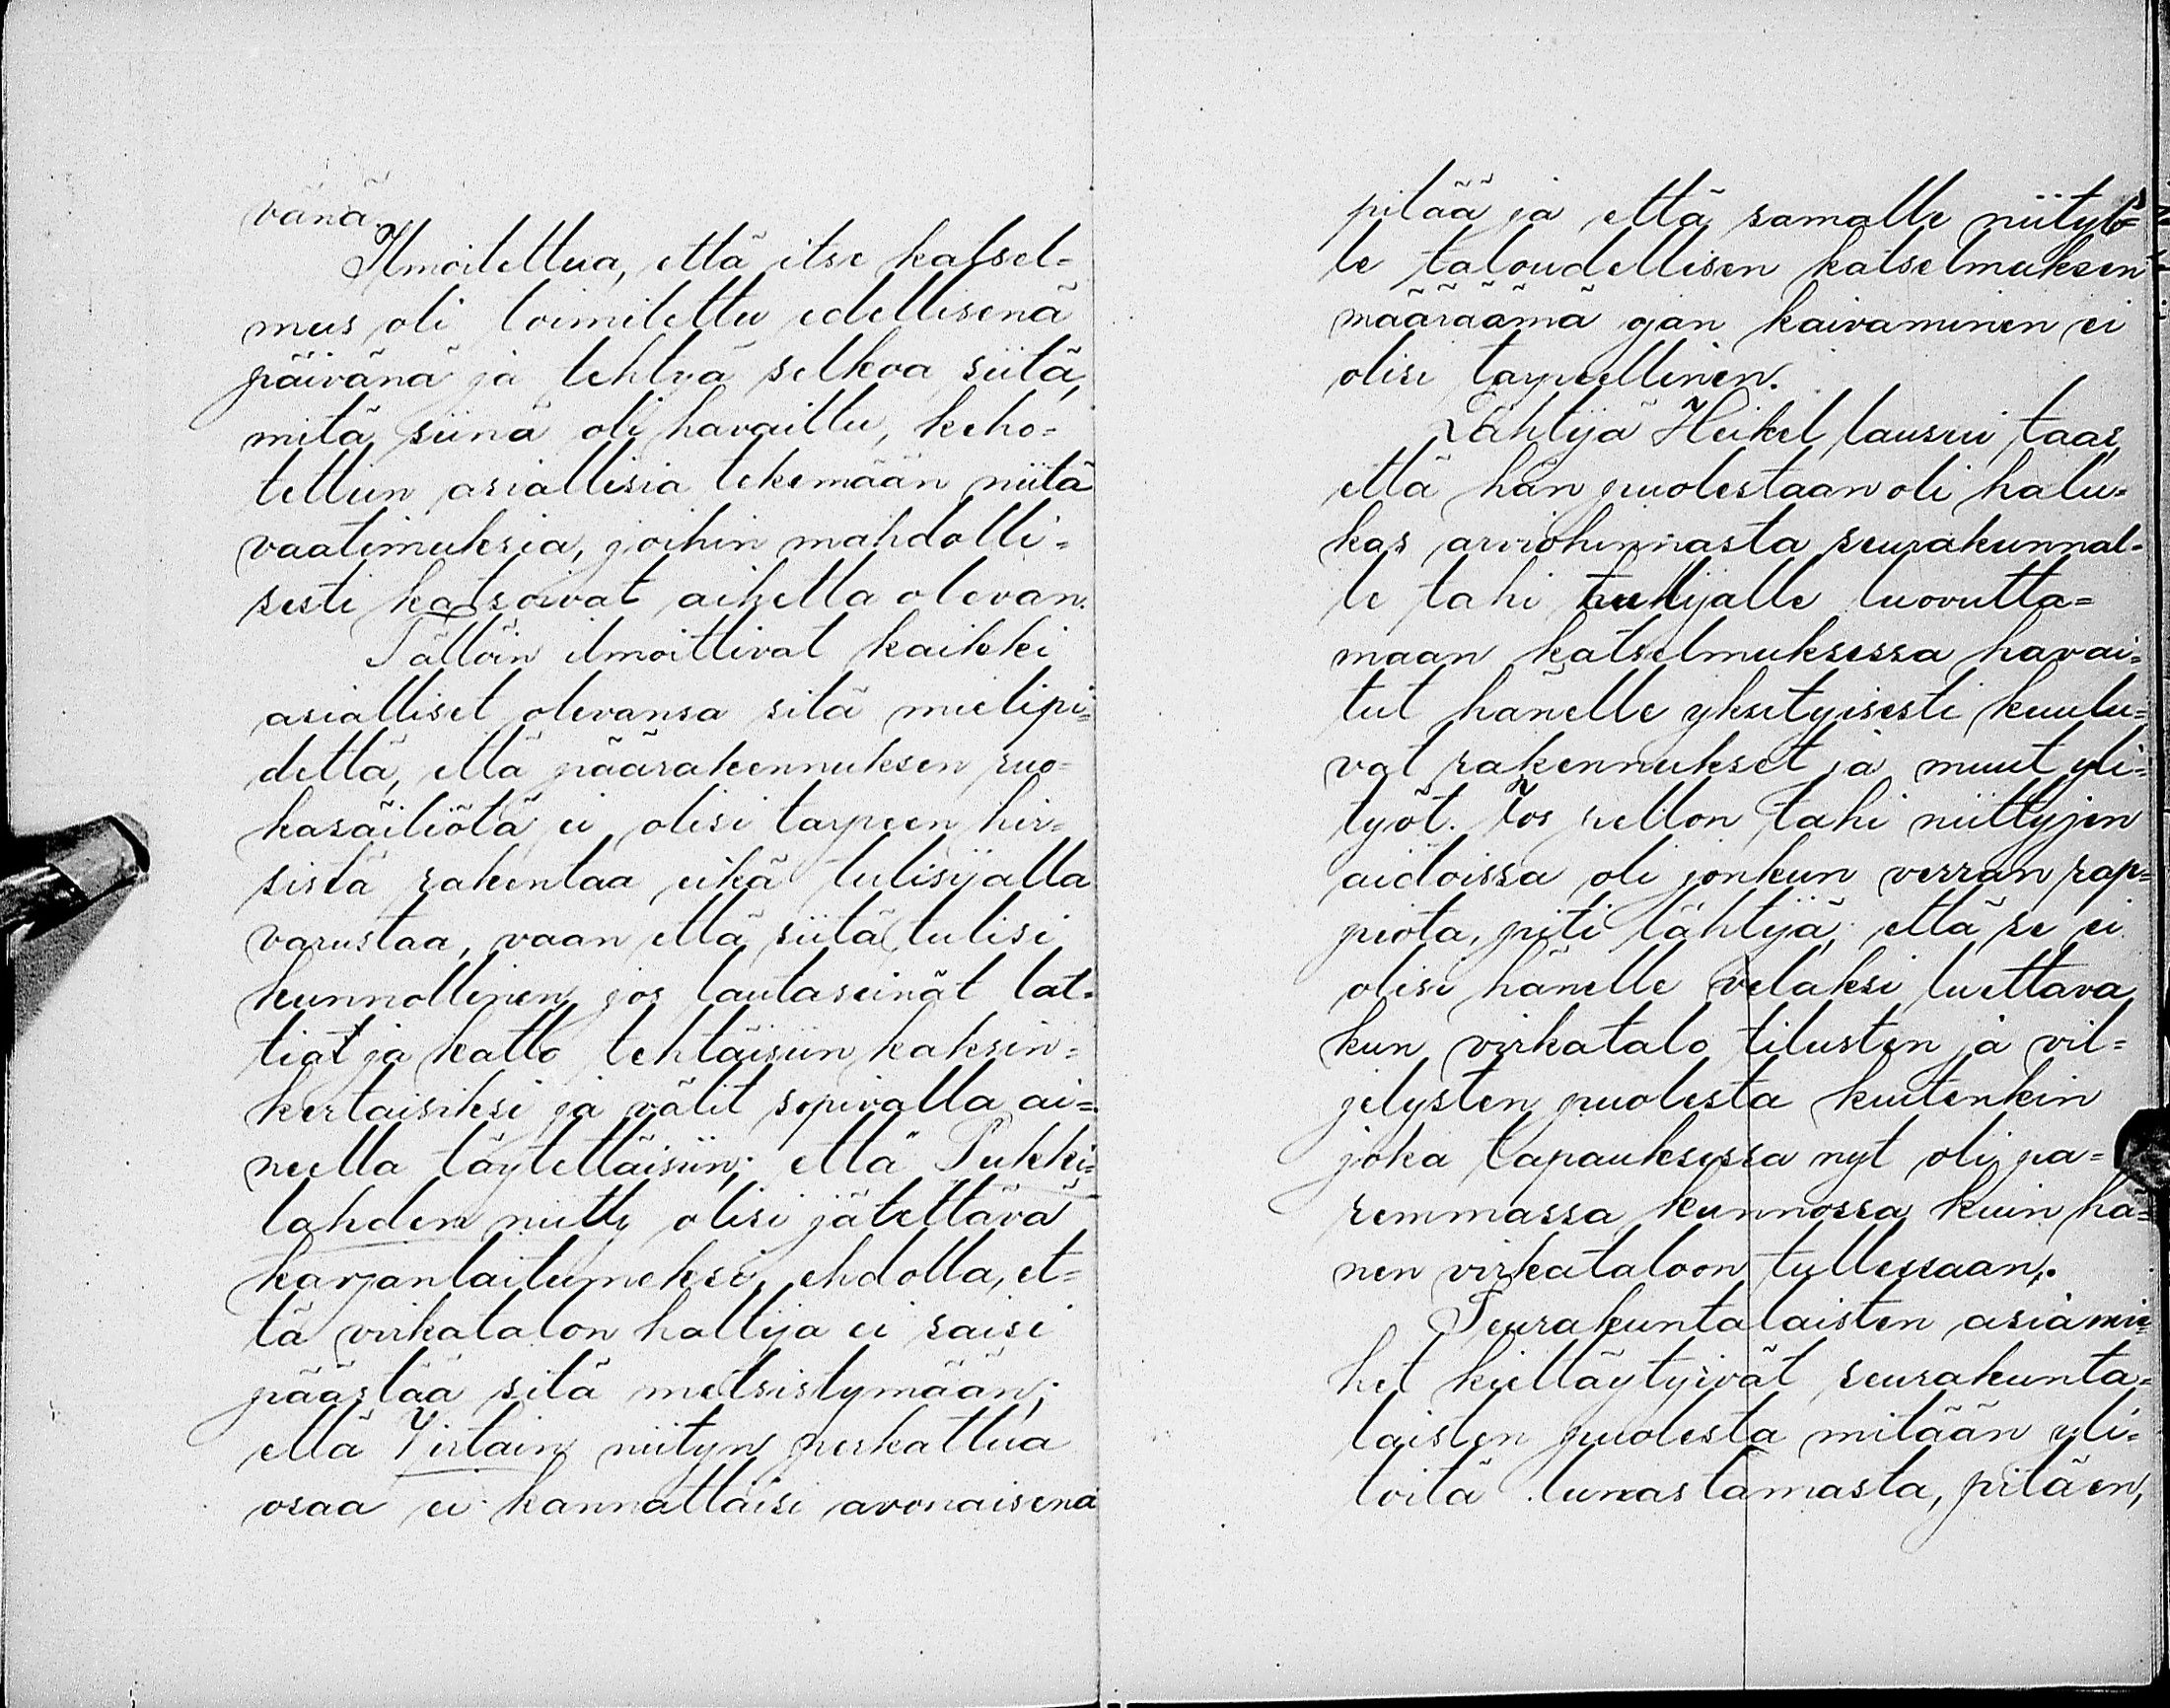 vänä.
Ilmoitettua, että itse katsel=
mus oli toimitettu edellisenä
päivänä ja tehtyä selkoa siitä,
mitä siinä oli havaittu, keho=
tettiin asiallisia tekemään niitä
vaatimuksia, joihin mahdolli=
sesti katsoivat aihetta olevan.
Tällöin ilmoittivat kaikki
asialliset olevansa sitä mielipi=
dettä, että päärakennuksen ruo=
kasäiliötä ei olisi tarpeen hir=
sistä rakentaa eikä tulisijalla
varustaa, vaan että siitä tulisi
kunnollinen jos lautaseinät lat=
tiat ja katto tehtäisiin kaksin=
kertaisiksi ja välit sopivalla ai=
neella täytettäisiin; että Pukki=
lahden niitty olisi jätettävä
karjanlaitumeksi, ehdolla, et=
tä virkatalon haltija ei saisi
päästää sitä metsistymään;
että Virtain niityn perkattua
osaa ei kannattaisi avonaisena
pitää ja että samalle niitylle=
le taloudellisen katselmuksen
määräämä ojan kaivaminen ei
olisi tarpeellinen.
Lähtijä Heikel lausui taas,
että hän puolestaan oli halu=
kas arviohinnasta seurakunnal=
le tahi tulijalle luovutta=
maan katselmuksessa havai=
tut hänelle yksityisesti kuulu=
vat rakennukset ja muut yli=
työt. Jos pellon tahi niittyjen
aidoissa oli jonkun verran rap=
piota, piti lähtijä, että se ei
olisi hänelle velaksi luettava
kun virkatalo tilusten ja vil=
jelysten puolesta kuitenkin
joka tapauksessa nyt oli pa=
remmassa kunnossa kuin hä=
nen virkataloon tullessaan.
Seurakuntalaisten asiamie=
het kieltäytyivät seurakunta=
laisten puolesta mitään yli=
töitä lunastamasta, pitäen,